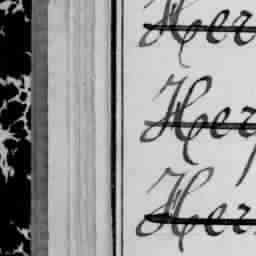 Her
Her
Her